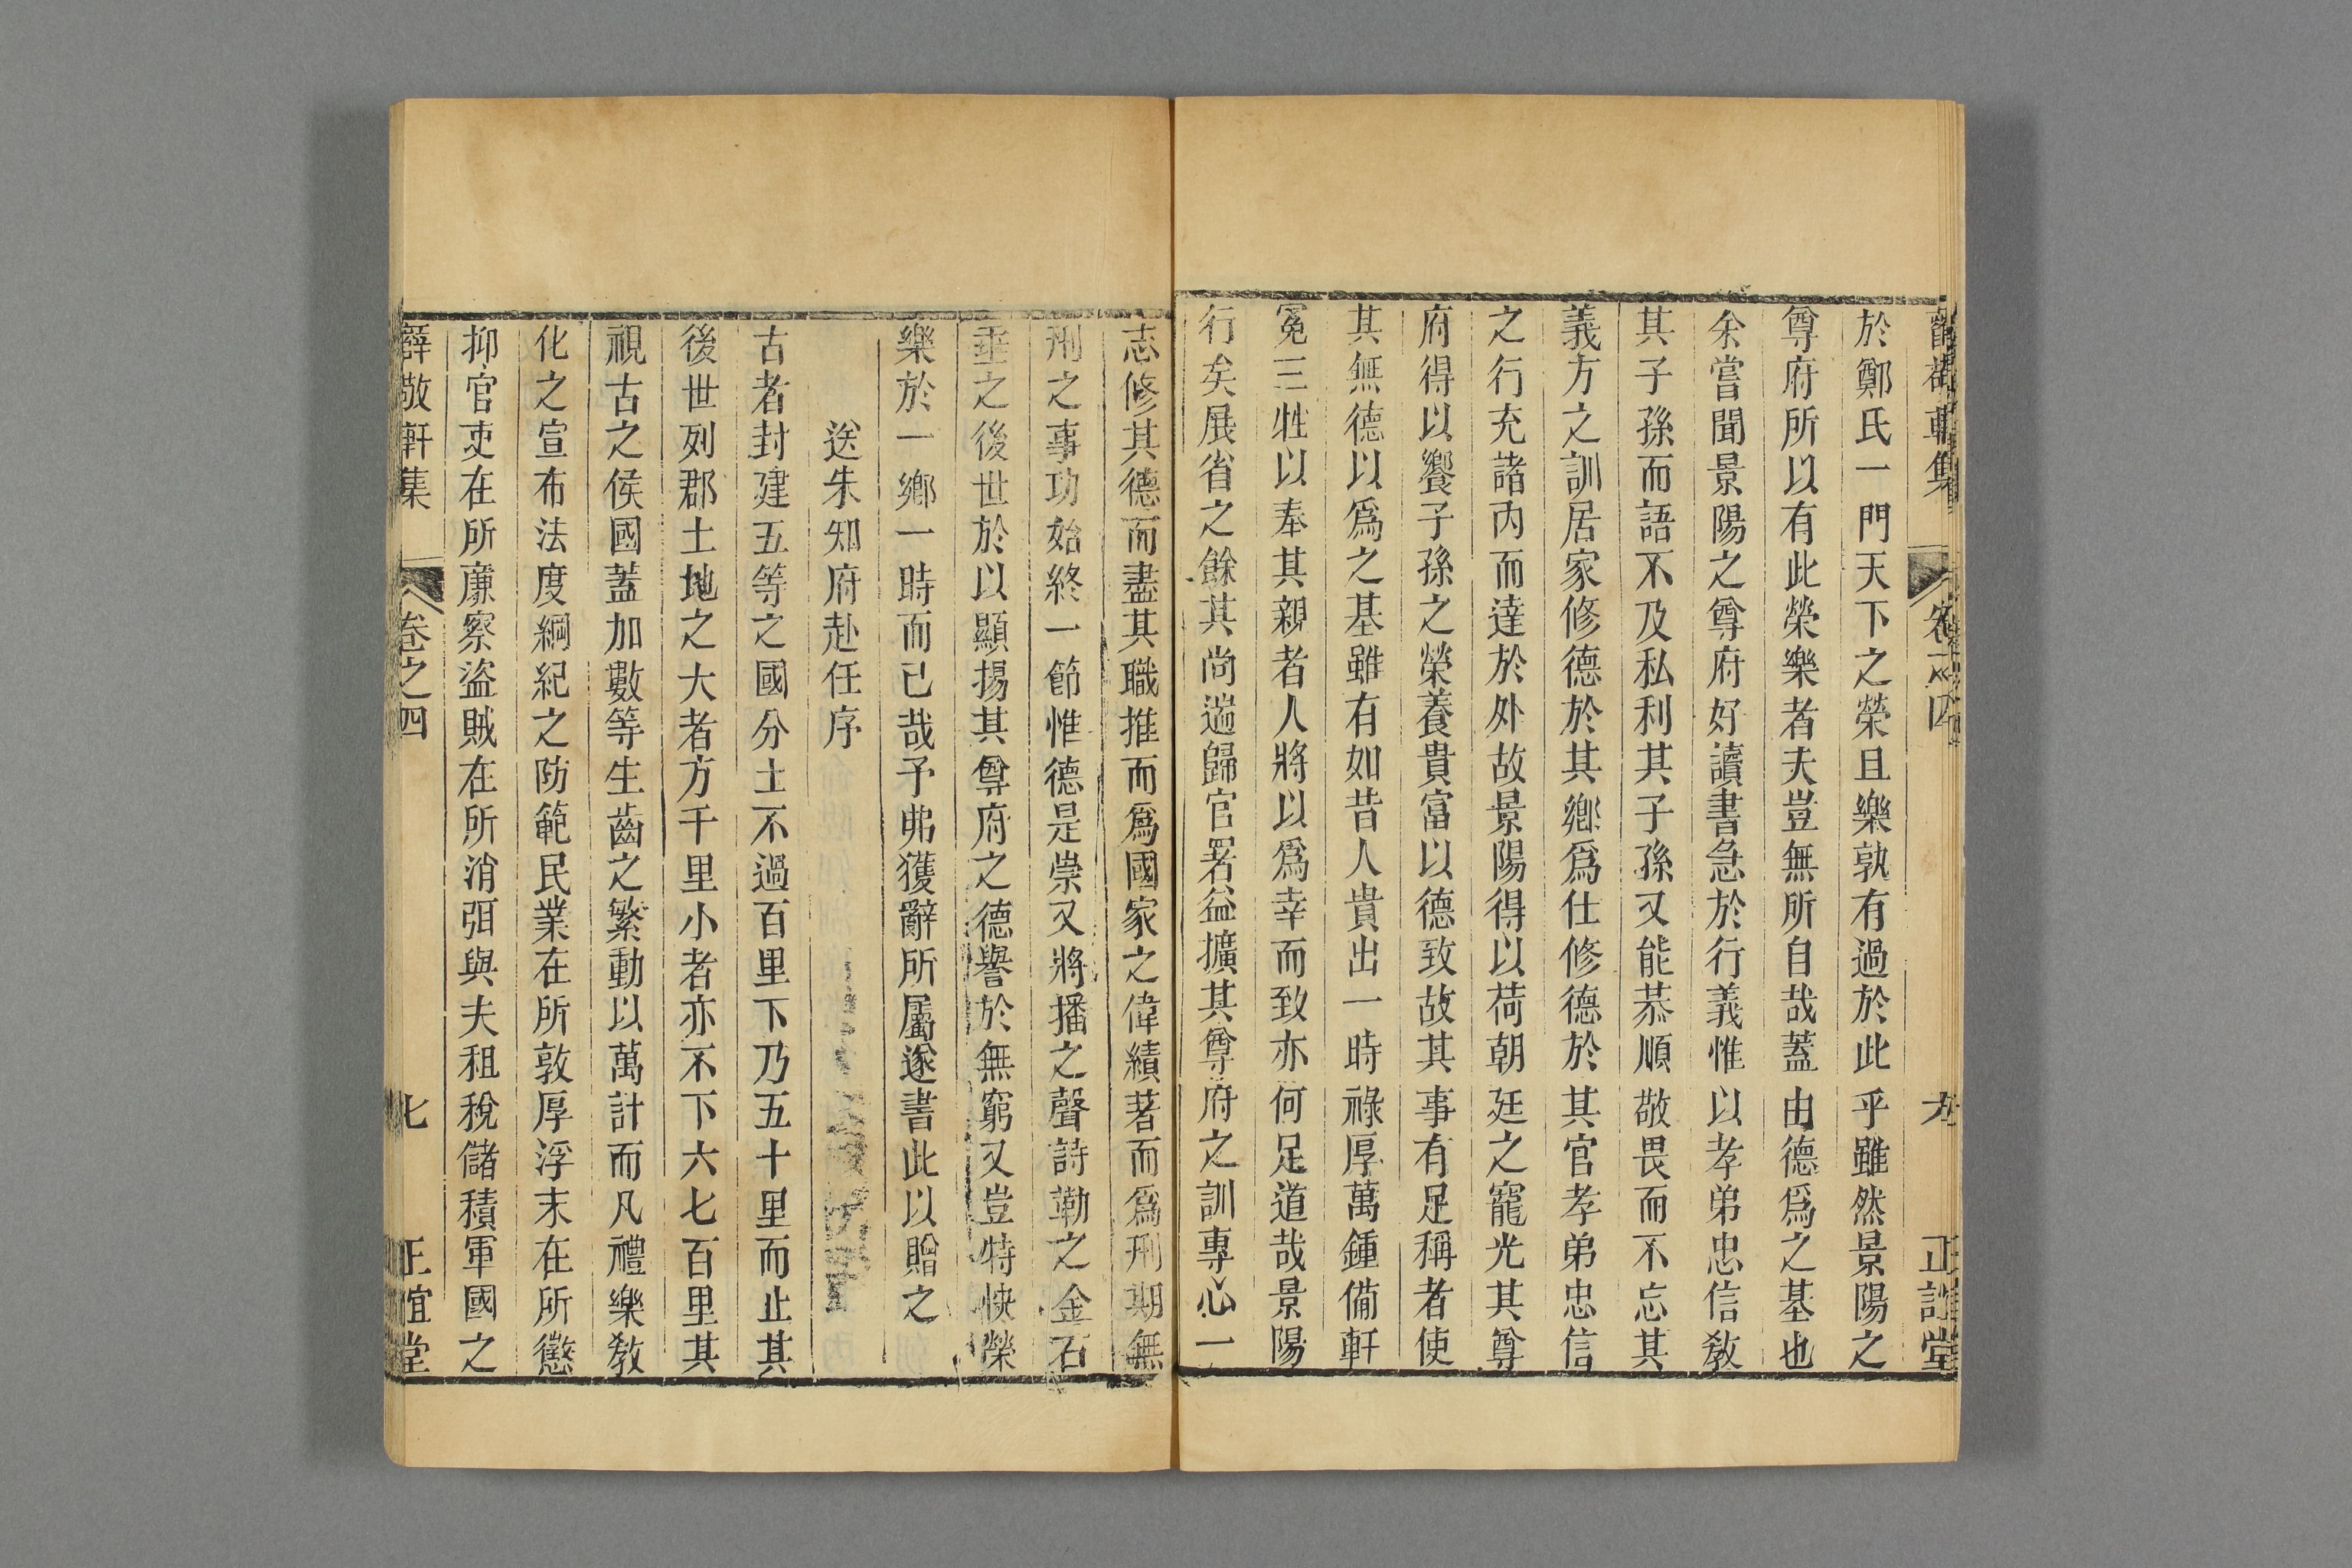 薛敬軒集 卷之四 正誼堂
於鄭氏一門天下之榮且樂孰有過於此乎雖然景陽之
尊府所以有此榮樂者夫豈無所自哉蓋由德爲之基也
余嘗聞景陽之尊府好讀書急於行義惟以孝弟忠信敎
其子孫而語不及私利其子孫又能恭順敬畏而不忘其
義方之訓居家修德於其鄉爲仕修德於其官孝弟忠信
之行充諸內而達於外故景陽得以荷朝廷之寵光其尊
府得以饗子孫之榮養貴富以德致故其事有足稱者使
其無德以爲之基雖有如昔人貴出一時祿厚萬鍾備軒
冕三牲以奉其親者人將以爲幸而致亦何足道哉景陽
行矣展省之餘其尚遄歸官署益擴其尊府之訓專心一
志修其德而盡其職推而爲國家之偉績著而爲刑期無
刑之事功始終一節惟德是崇又將播之聲詩勒之金石
垂之後世於以顯揚其尊府之德譽於無窮又豈特快榮
樂於一鄉一時而已哉予弗獲辭所屬遂書此以贈之
送朱知府赴任序
古者封建五等之國分土不過百里下乃五十里而止其
後世列郡土地之大者方千里小者亦不下六七百里其
視古之侯國蓋加數等生齒之繁動以萬計而凡禮樂敎
化之宣布法度綱紀之防範民業在所敦厚浮末在所懲
抑官吏在所廉察盜賊在所消弭與夫租稅儲積軍國之
薛敬軒集 卷之四 七 正誼堂